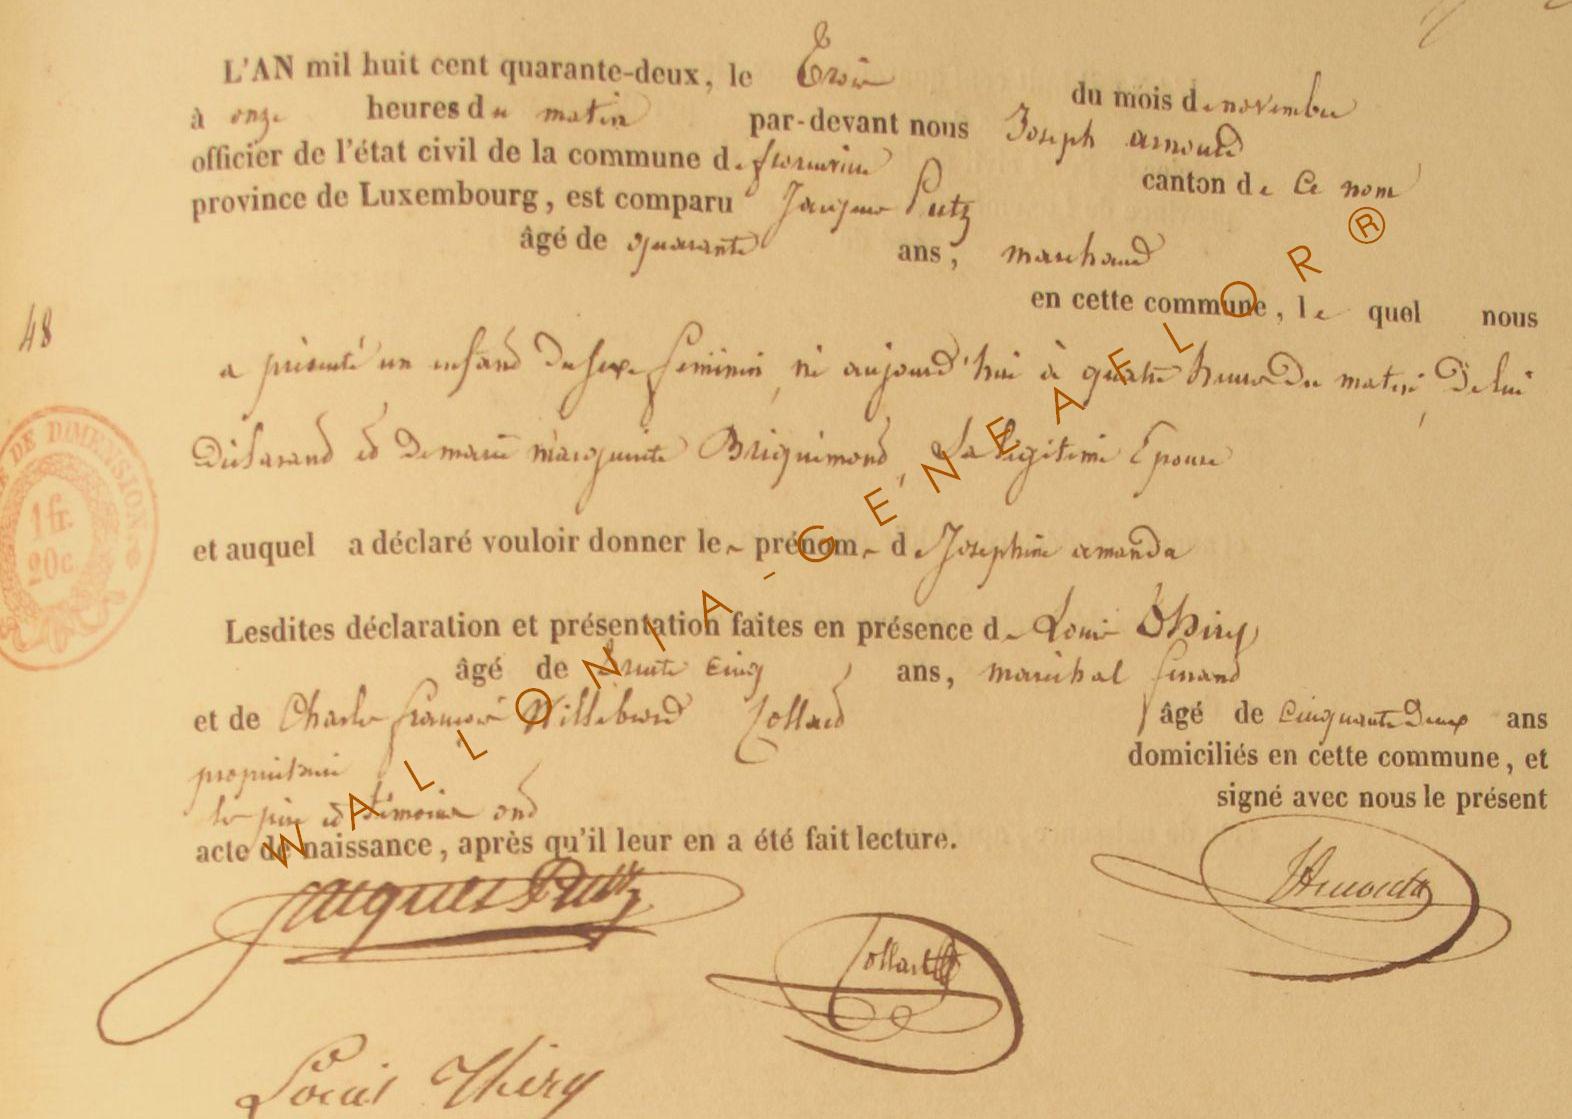 L'AN mil huit cent quarante-deux, le Trois du mois de novembre
à onze heures du matin par-devant nous Joseph arnould
officier de l'état civil de la commune de florenville canton de Ce nom
province de Luxembourg, est comparu Jacques Putz
âgé de quarante ans, marchand
en cette commune, le quel nous
48
a présenté un enfant du sexe féminin, né aujourd'hui à quatre heures du matin, De lui
Déclarant et De marie marguerite Briquemont, Sa légitime Epouse
DE DIMENSION
1 fr.
20 c.
et auquel a déclaré vouloir donner le prénom de Josephine amanda
Lesdites déclaration et présentation faites en présence de Louis Thiry
âgé de trente cinq ans, maréchal ferrant
et de Charles françois Willebrord Collard âgé de Cinquante Deux ans
propriétaire domiciliés en cette commune, et
les père et témoins ont signé avec nous le présent
acte de naissance, après qu'il leur en a été fait lecture.
Jacques Putz
Collard
Louis Thiry
WALLONIA-GENEAFLOR®